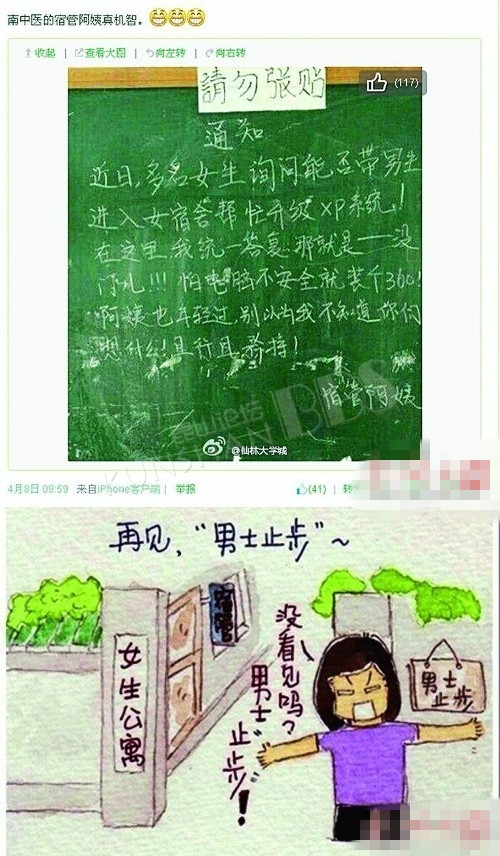 南中医的宿管阿姨真机智。
收起 查看大图 向左转 向右转
(117)
請勿张贴
通知
近日,多名女生询问能否带男生
进入女宿舍帮忙升级XP系统,!
在这里,我统一答复,那就是——没
门儿!!!怕电脑不安全就装个360!
啊姨也年轻过,别以为我不知道你们
想什么!且行且珍持!
宿管阿姨
昆山论坛
KUNSHAN BBS
@仙林大学城
4月8日 09:59 来自iPhone客户端 | 举报 (41) |
再见,“男士止步”~
宿管
女生公寓
没看见吗?
男士“止步”!
男士
止步